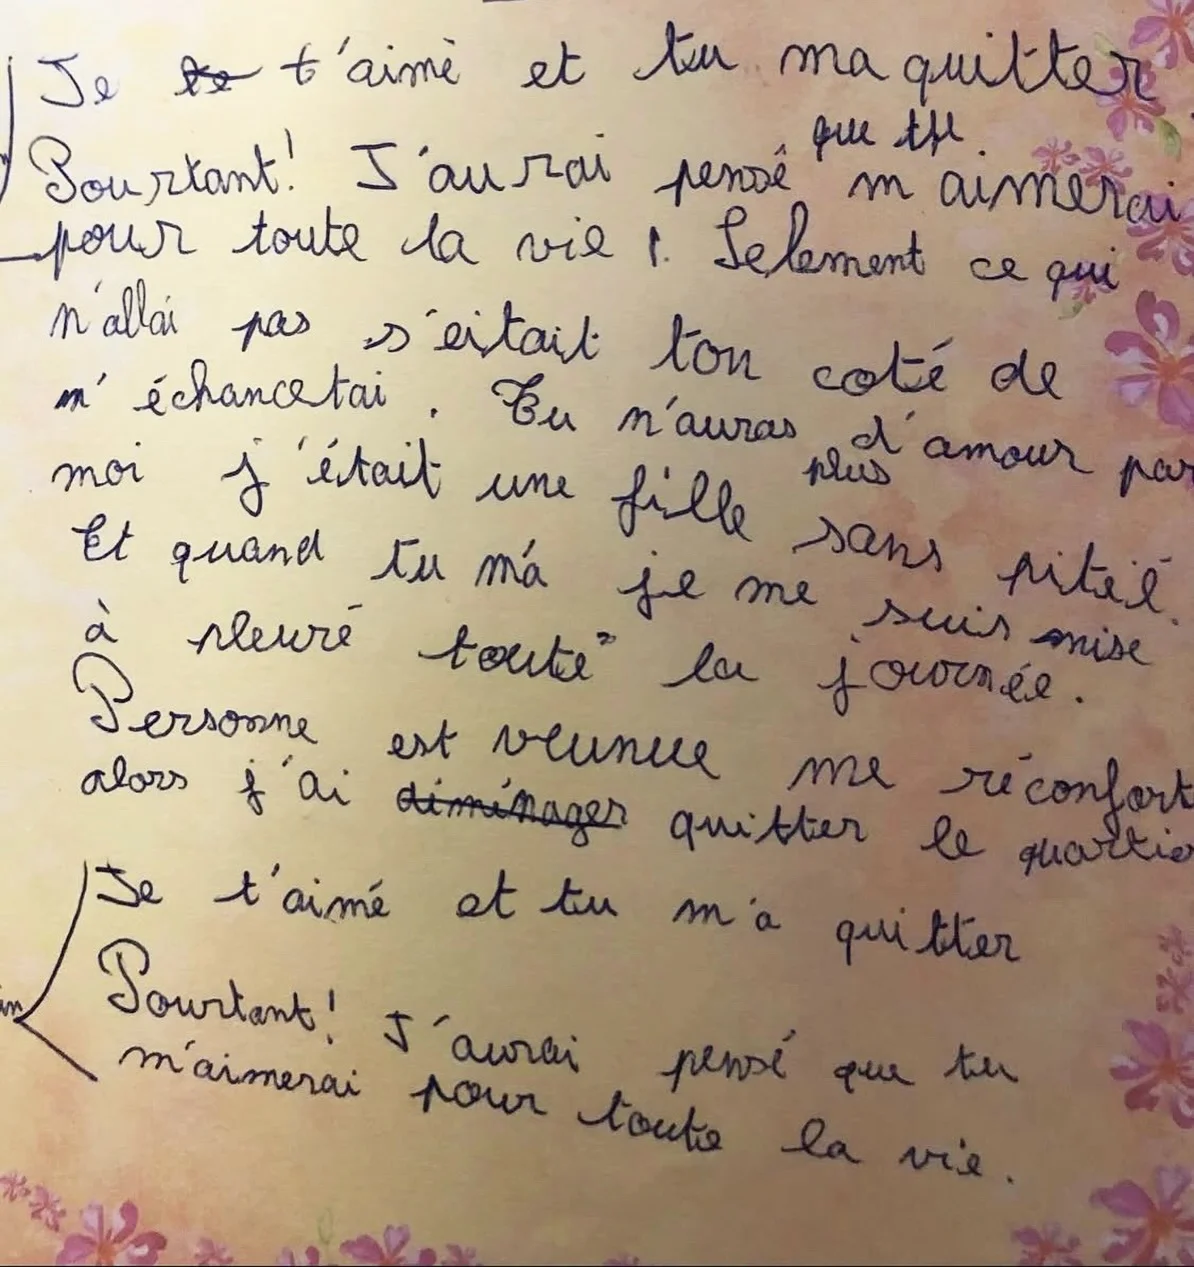 Je te t'aimé et tu ma quitter
Pourtant! J'aurai pensé que tu m aimerai
pour toute la vie ! Selement ce qui
n'allai pas s'eitait ton coté de
m'échancetai. Tu n'auras plus d'amour par
moi j'était une fille sans piteié.
Et quand tu m'a je me suis mise
à pleuré toute la journée.
Personne est veunue me réconfort
alors j'ai diménager quitter le quartie
Je t'aimé et tu m'a quitter
Pourtant! J'aurai pensé que tu
m'aimerai pour toute la vie.